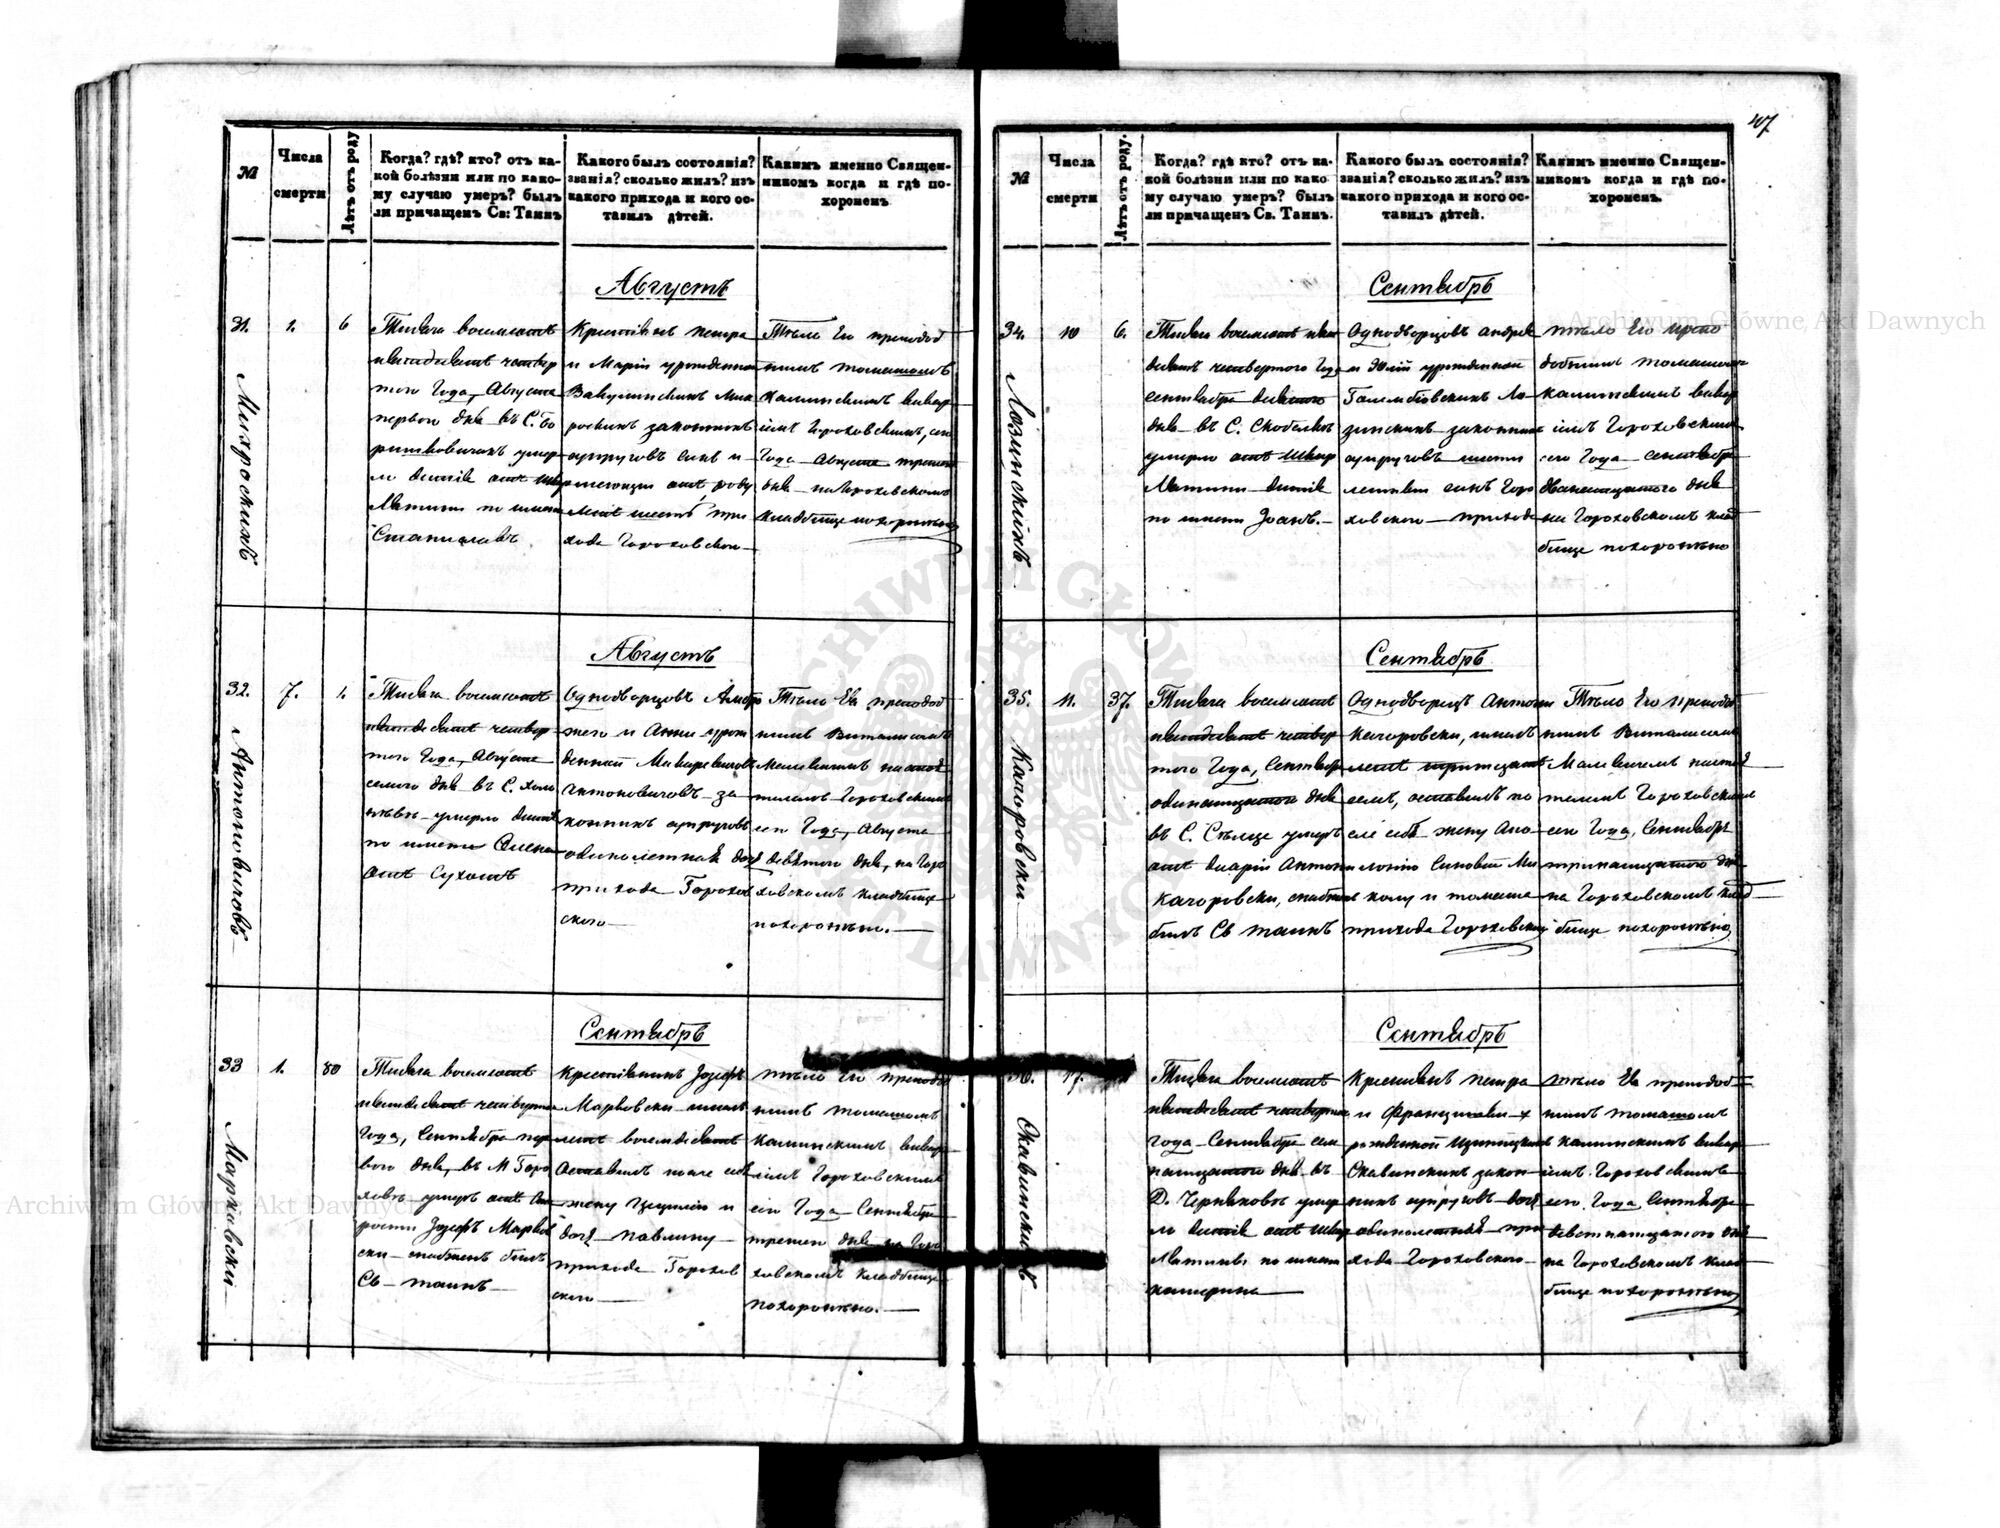 47
№
Числа смерти
Лѣтъ отъ роду
Когда? гдѣ? кто? отъ ка-
кой болѣзни или по како-
му случаю умеръ? былъ
ли причащенъ Св: Таинъ
Какого былъ состоянія?
званія? сколько жилъ? изъ
какого прихода и кого ос-
тавилъ дѣтей.
Какимъ именно Священ-
никомъ когда и гдѣ по-
хороненъ.
Августъ
31.
1.
6
Микроскихъ
Тысяча восемьсотъ
пятдесятъ четвер
того Года, Августа
перваго дня въ С. Бо
умер
ло дитя отъ
по имени
Станиславъ
Крестьянъ Петра
и Маріи урожденной
законныхъ
супруговъ сынъ
имеющи отъ роду
летъ шесть при
хода Горохов
Тѣло Его преподоб
нымъ Томашомъ
Каминскимъ викар
іемъ Гороховскимъ, сего
Года Августа третьяго
дня на Гороховскомъ
кладбище похоронено
Августъ
32.
7.
1.
Антоновичовъ
Тысяча восемьсотъ
пятдесятъ четвер
того Года, Августа
семого дня въ С. Холо
невѣ умерло дитя
по имени Елена
отъ Сухотъ
Однодворцовъ Амбро
жего и Анны урож
денной Макаревичовъ
Антоновичовъ за
конныхъ супруговъ
однолетная дочь
прихода Горохов
ского
Тѣло Ея преподоб
нымъ Виталисомъ
Малевичемъ настоя
телемъ Гороховскимъ
сего Года, Августа
девятого дня, на Горо
ховскомъ кладбище
похоронено.
Сентябрь
33
1.
80
Марковски
Тысяча восемьсотъ
пятдесятъ четвертого
Года, Сентября пер
вого дня, въ М Горо
ховѣ умеръ отъ ста
рости Јозефъ Марков
ски снабженъ былъ
Св таинъ
Крестьянинъ Јозефъ
Марковски имелъ
летъ восемдесятъ
Оставилъ после себя
жену Цецилію и
дочь Павлину
прихода Горохов
ского
тѣло Его преподоб
нымъ томашомъ
каминскимъ викар
іемъ Гороховскимъ
сего Года Сентября
третего дня на Горо
ховскомъ кладбище
похоронено.
№
Числа смерти
Лѣтъ отъ роду.
Когда? гдѣ кто? отъ ка-
кой болѣзни или по како
му случаю умеръ? былъ
ли причащенъ Св. Таинъ.
Какого былъ состоянія?
званія? сколько жилъ? изъ
какого прихода и кого ос-
тавилъ дѣтей.
Какимъ именно Священ-
никомъ когда и гдѣ по-
хороненъ.
Сентябрь
34.
10
6.
Лозинскихъ
Тысяча восемьсотъ пят
десятъ четвертого Года
сентября
дня въ С. Скобелкѣ
умерло отъ
дитя
по имени Јоанъ.
Однодворцовъ Андрея
и Юліи урожденной
Голембіовскихъ Ло
зинскихъ законныхъ
супруговъ шести
летный сынъ Горо
ховского прихода
тѣло Его препо
добнымъ томашомъ
каминскимъ викар
іемъ Гороховскимъ
сего Года сентября
дванатцатого дня
на Гороховскомъ клад
бище похоронено
Сентябрь
35.
11.
37.
Качоровски
Тысяча восемьсотъ
пятдесятъ четвер
того Года, Сентября
одинатцатого дня
въ С. Сѣльце умеръ
отъ діаріи Антони
Качоровски, снабженъ
былъ Св таинъ
Однодворецъ Антони
Качоровски, имелъ
летъ тритцать
семъ, оставилъ по
сле себѣ жену Апо
лонію Сыновей Ми
колу и томаша
прихода Гороховскаго
Тѣло Его преподоб
нымъ Виталисомъ
Малевичемъ настоя
телемъ Гороховскимъ
сего Года, Сентября
тринатцатого дня
на Гороховскомъ клад
бище похоронено
Сентябрь
36.
17.
Окавинскихъ
Тысяча восемьсотъ
пятдесятъ четвертого
года Сентября сем
натцатого дня въ
Д. Чернковѣ умер
ло дитя отъ
по имени
катерина
Крестьянъ петра
и Францишки у
рожденной
Окавинскихъ закон
ныхъ супруговъ дочь
однолетная при
хода Гороховского
тѣло Ея преподоб
нымъ томашомъ
каминскимъ викар
іемъ Гороховскимъ
сего Года Сентября
девятнатцатого дня
на Гороховскомъ клад
бище похоронено
Archiwum Główne Akt Dawnych
Archiwum Główne Akt Dawnych
ARCHIWUM GŁÓWNE AKT DAWNYCH